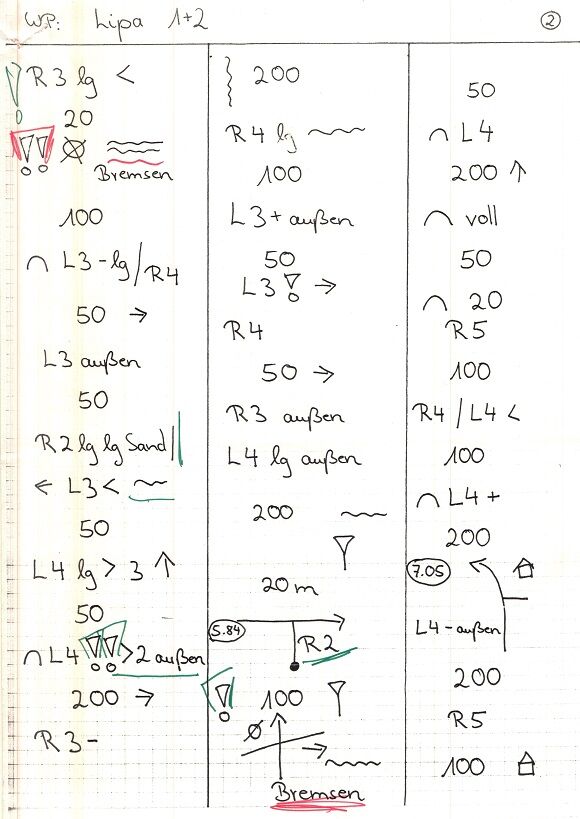 WP: Lipa 1+2 ②
R3 lg <
20
Bremsen
100
∩ L3-lg/R4
50 →
L3 außen
50
R2 lg lg Sand
← L3 <
50
L4 lg > 3 ↑
50
∩ L4 !! > 2 außen
200 →
R3-
200
R4 lg
100
L3+ außen
50
L3 ! →
R4
50 →
R3 außen
L4 lg außen
200
20m
5.84
R2
! 100
Ø
Bremsen
50
∩ L4
200 ↑
∩ voll
50
∩ 20
R5
100
R4 / L4 <
100
∩ L4+
200
7.05
L4-außen
200
R5
100